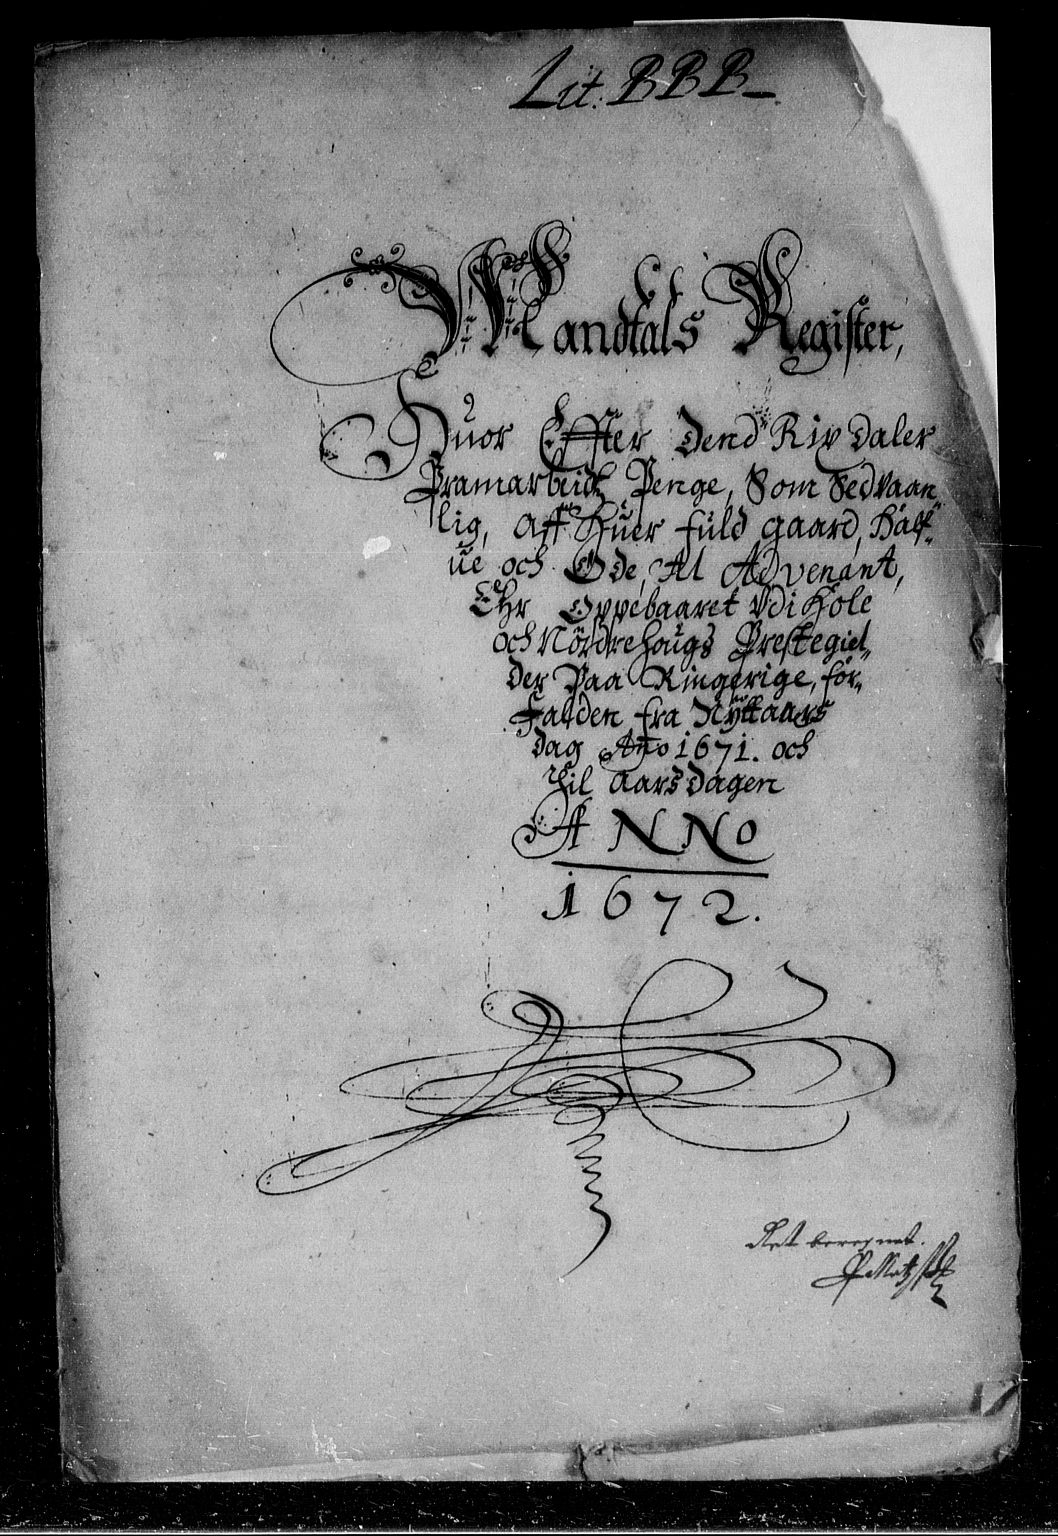 Lit. BBB
Mandtals Register,
Huor Effter dend Rix daler
Pramarbeids Penge, Som Sedvaan„
lig, aff huer fuld gaard, half„
ue och Øde, Al Advenant,
Ehr Oppebaaret Udi Hole
och Nördrehougs Prestegiel„
der Paa Ringerige, for„
falden fra Nyttaars
dag Ano 1671. och
til aarsdagen
ANNo
1672.
Ret beregnet.